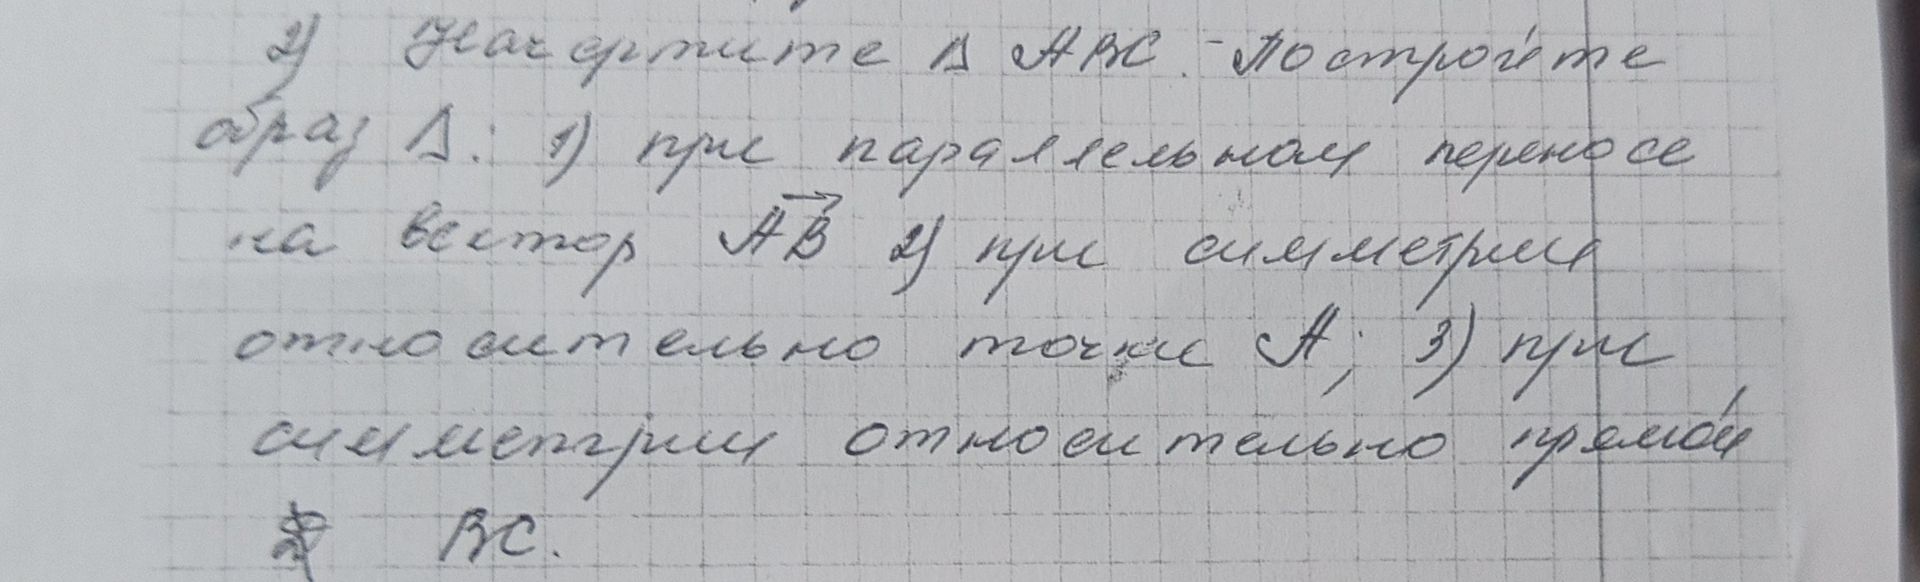 2) Начертите Δ ABC. Постройте
образ Δ: 1) при параллельном переносе
на вектор AB 2) при симметрии
относительно точки A; 3) при
симметрии относительно прямой
BC.